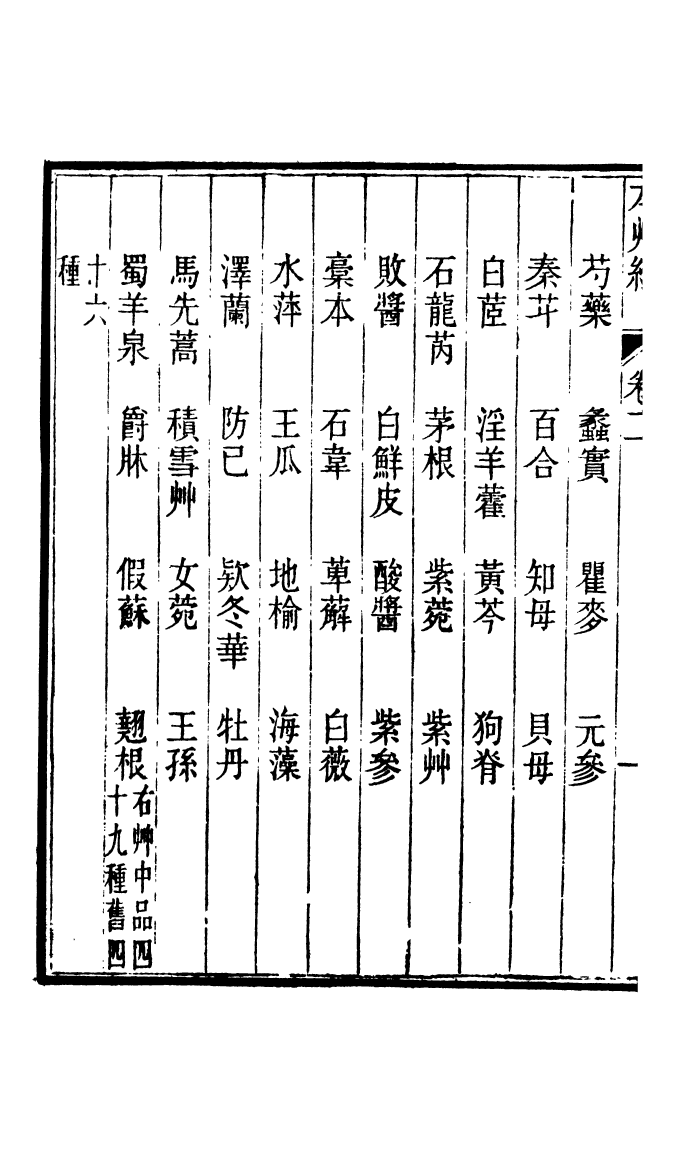 本艸經 卷二 一
芍藥 蠡實 瞿麥 元參
秦艽 百合 知母 貝母
白茝 淫羊藿 黃芩 狗脊
石龍芮 茅根 紫菀 紫艸
敗醬 白鮮皮 酸醬 紫參
藁本 石韋 萆薢 白薇
水萍 王瓜 地榆 海藻
澤蘭 防已 欵冬華 牡丹
馬先蒿 積雪艸 女菀 王孫
蜀羊泉 爵牀 假蘇 翹根 右艸中品四十九種舊四
十六種